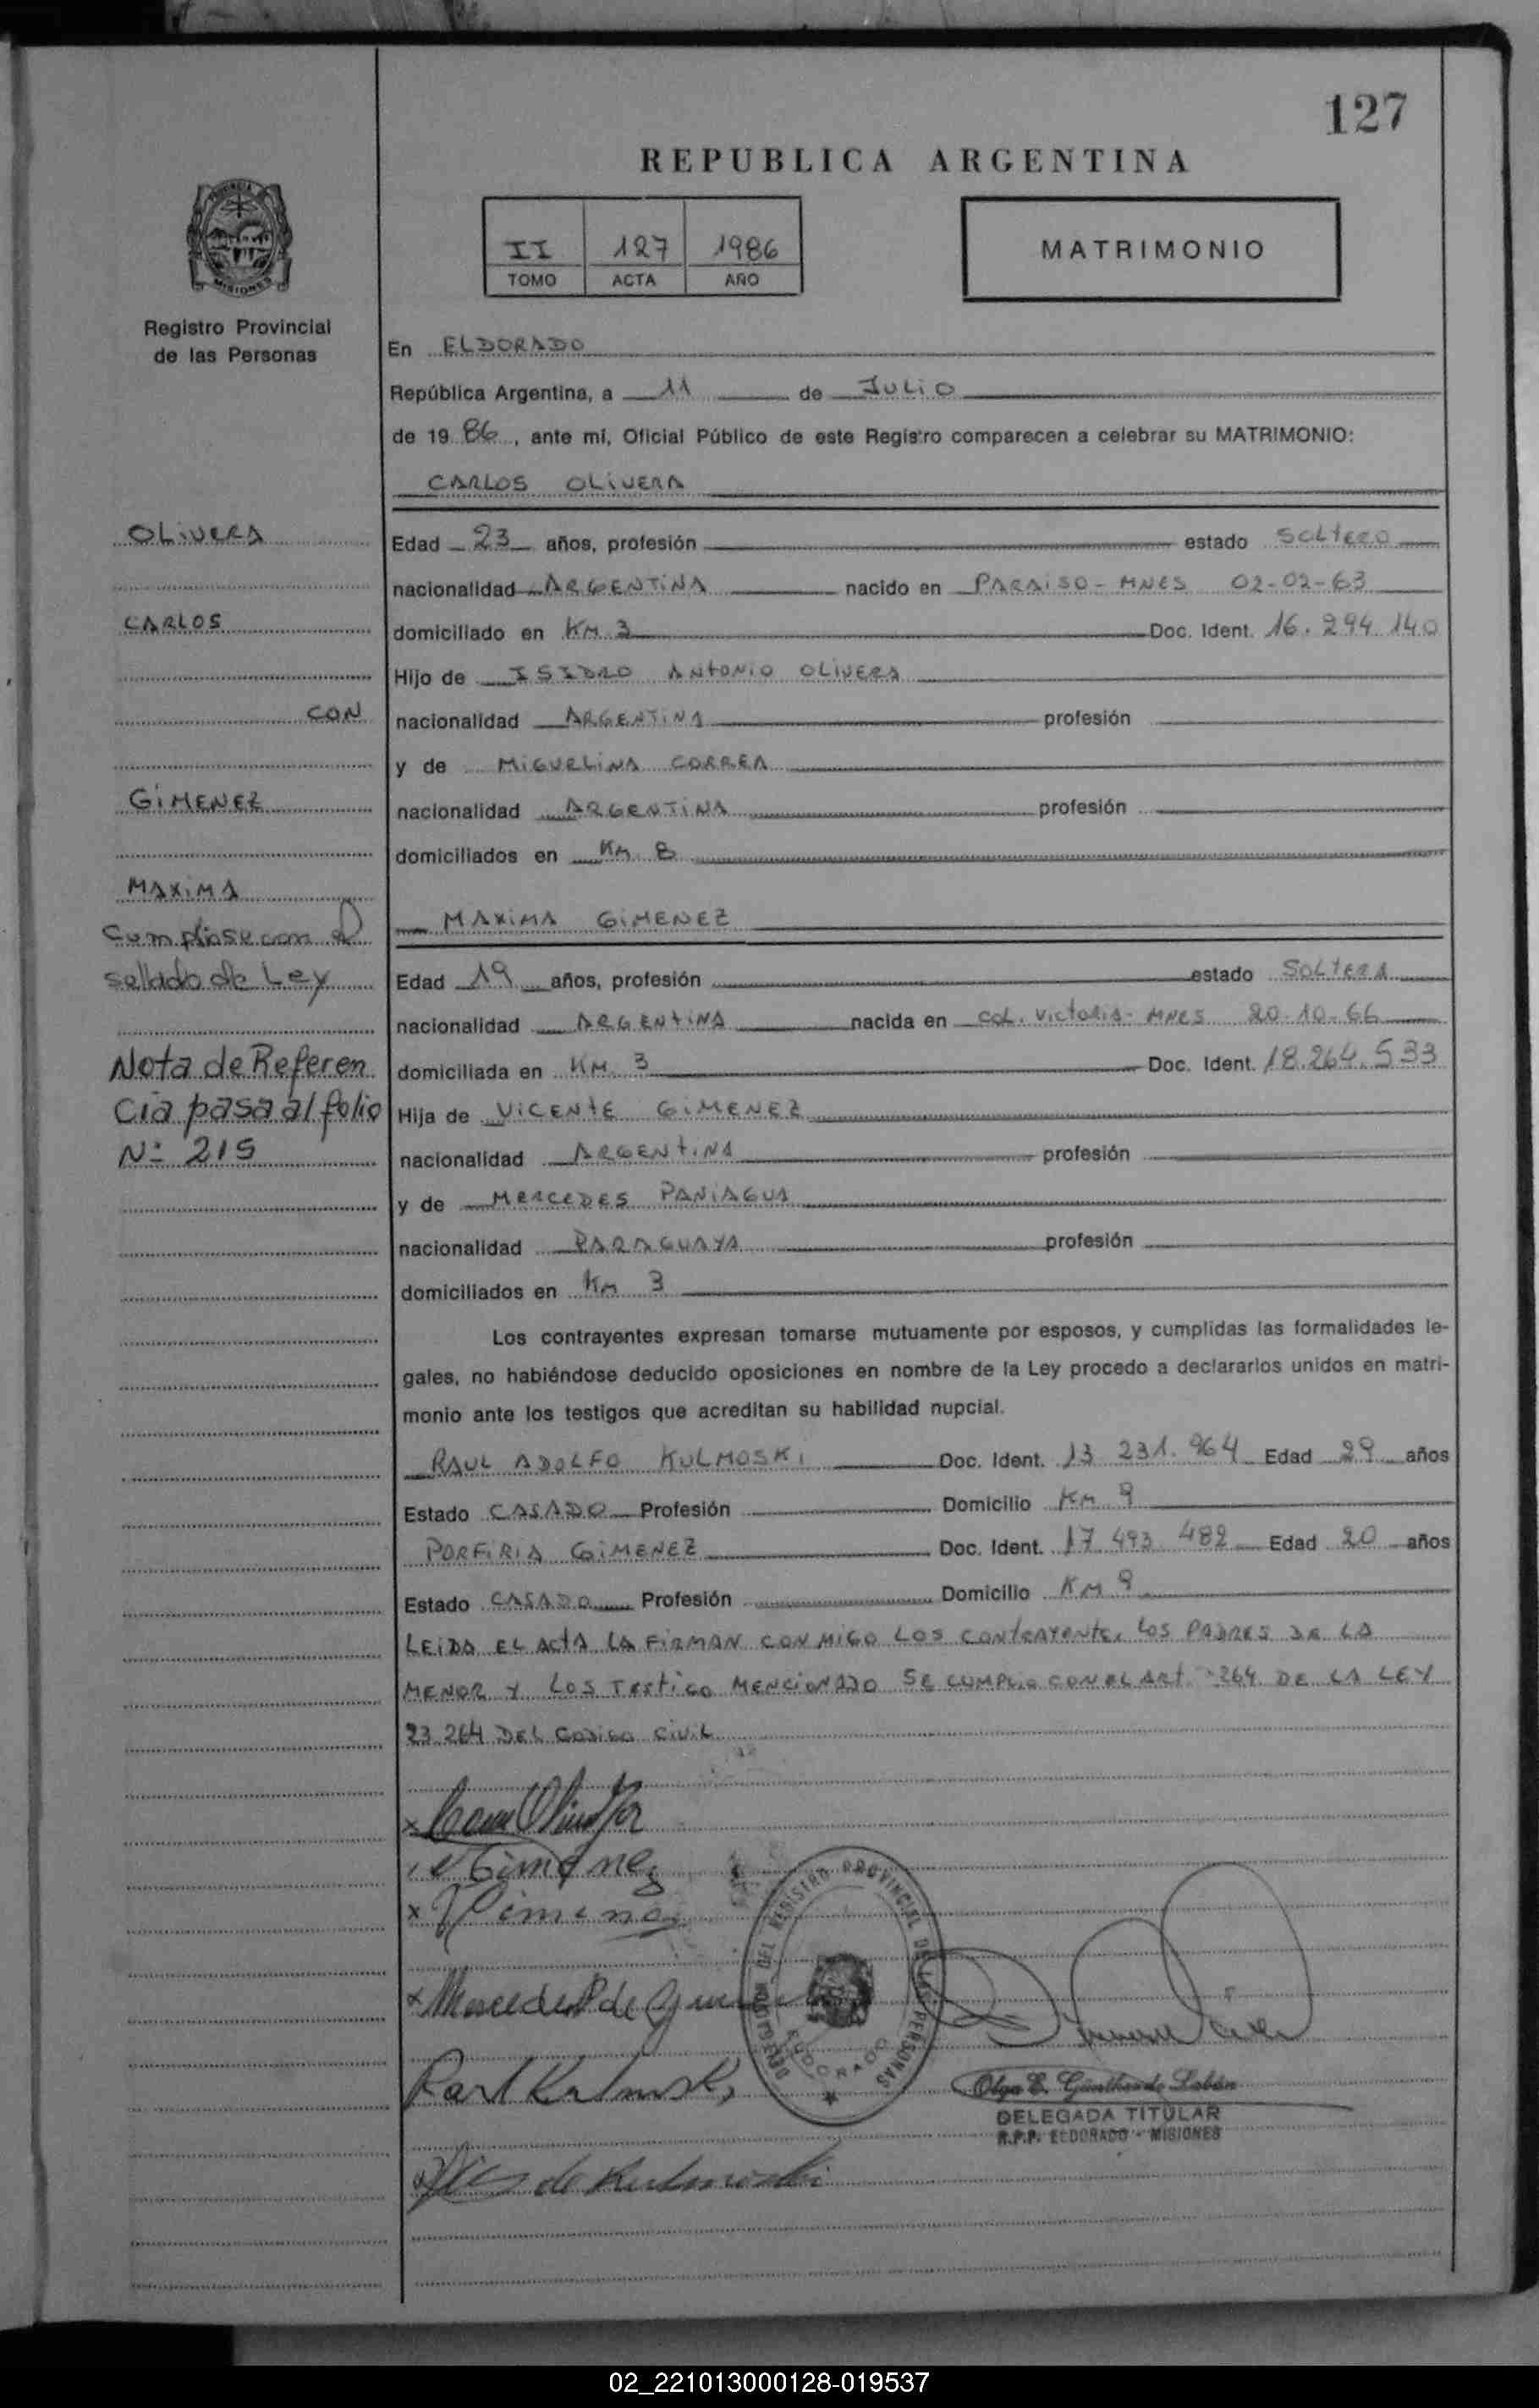 127
REPUBLICA ARGENTINA
II 127 1986
TOMO ACTA AÑO
MATRIMONIO
PROVINCIA
MISIONES
Registro Provincial
de las Personas
En ELDORADO
República Argentina, a 11 de JULIO
de 19 86, ante mí, Oficial Público de este Registro comparecen a celebrar su MATRIMONIO:
CARLOS OLIVERA
OLIVERA
CARLOS
CON
GIMENEZ
MAXIMA
Cumpliose con el
sellado de Ley
Nota de Referen
cia pasa al folio
Nº 215
Edad 23 años, profesión estado SOLTERO
nacionalidad ARGENTINA nacido en PARAISO - MNES 02-02-63
domiciliado en KM 3 Doc. Ident. 16.294.140
Hijo de ISIDRO ANTONIO OLIVERA
nacionalidad ARGENTINA profesión
y de MIGUELINA CORREA
nacionalidad ARGENTINA profesión
domiciliados en KM 8
MAXIMA GIMENEZ
Edad 19 años, profesión estado SOLTERA
nacionalidad ARGENTINA nacida en COL. VICTORIA - MNES 20-10-66
domiciliada en KM 3 Doc. Ident. 18.264.533
Hija de VICENTE GIMENEZ
nacionalidad ARGENTINA profesión
y de MERCEDES PANIAGUA
nacionalidad PARAGUAYA profesión
domiciliados en KM 3
Los contrayentes expresan tomarse mutuamente por esposos, y cumplidas las formalidades le-
gales, no habiéndose deducido oposiciones en nombre de la Ley procedo a declararlos unidos en matri-
monio ante los testigos que acreditan su habilidad nupcial.
RAUL ADOLFO KULMOSKI Doc. Ident. 13 231.964 Edad 29 años
Estado CASADO Profesión Domicilio KM 9
PORFIRIA GIMENEZ Doc. Ident. 17 493 482 Edad 20 años
Estado CASADO Profesión Domicilio KM 9
LEIDA EL ACTA LA FIRMAN CONMIGO LOS CONTRAYENTES LOS PADRES DE LA
MENOR Y LOS TESTIGO MENCIONADO SE CUMPLIO CON EL ART. 264 DE LA LEY
23.264 DEL CODIGO CIVIL
x
Gimenez
x Gimenez
x Mercedes P de
Raul Kulmoski
de Kulmoski
DEL REGISTRO PROVINCIAL DE LAS PERSONAS
ELDORADO
Olga E. Günther de Labán
DELEGADA TITULAR
R.P.P. ELDORADO - MISIONES
02_221013000128-019537